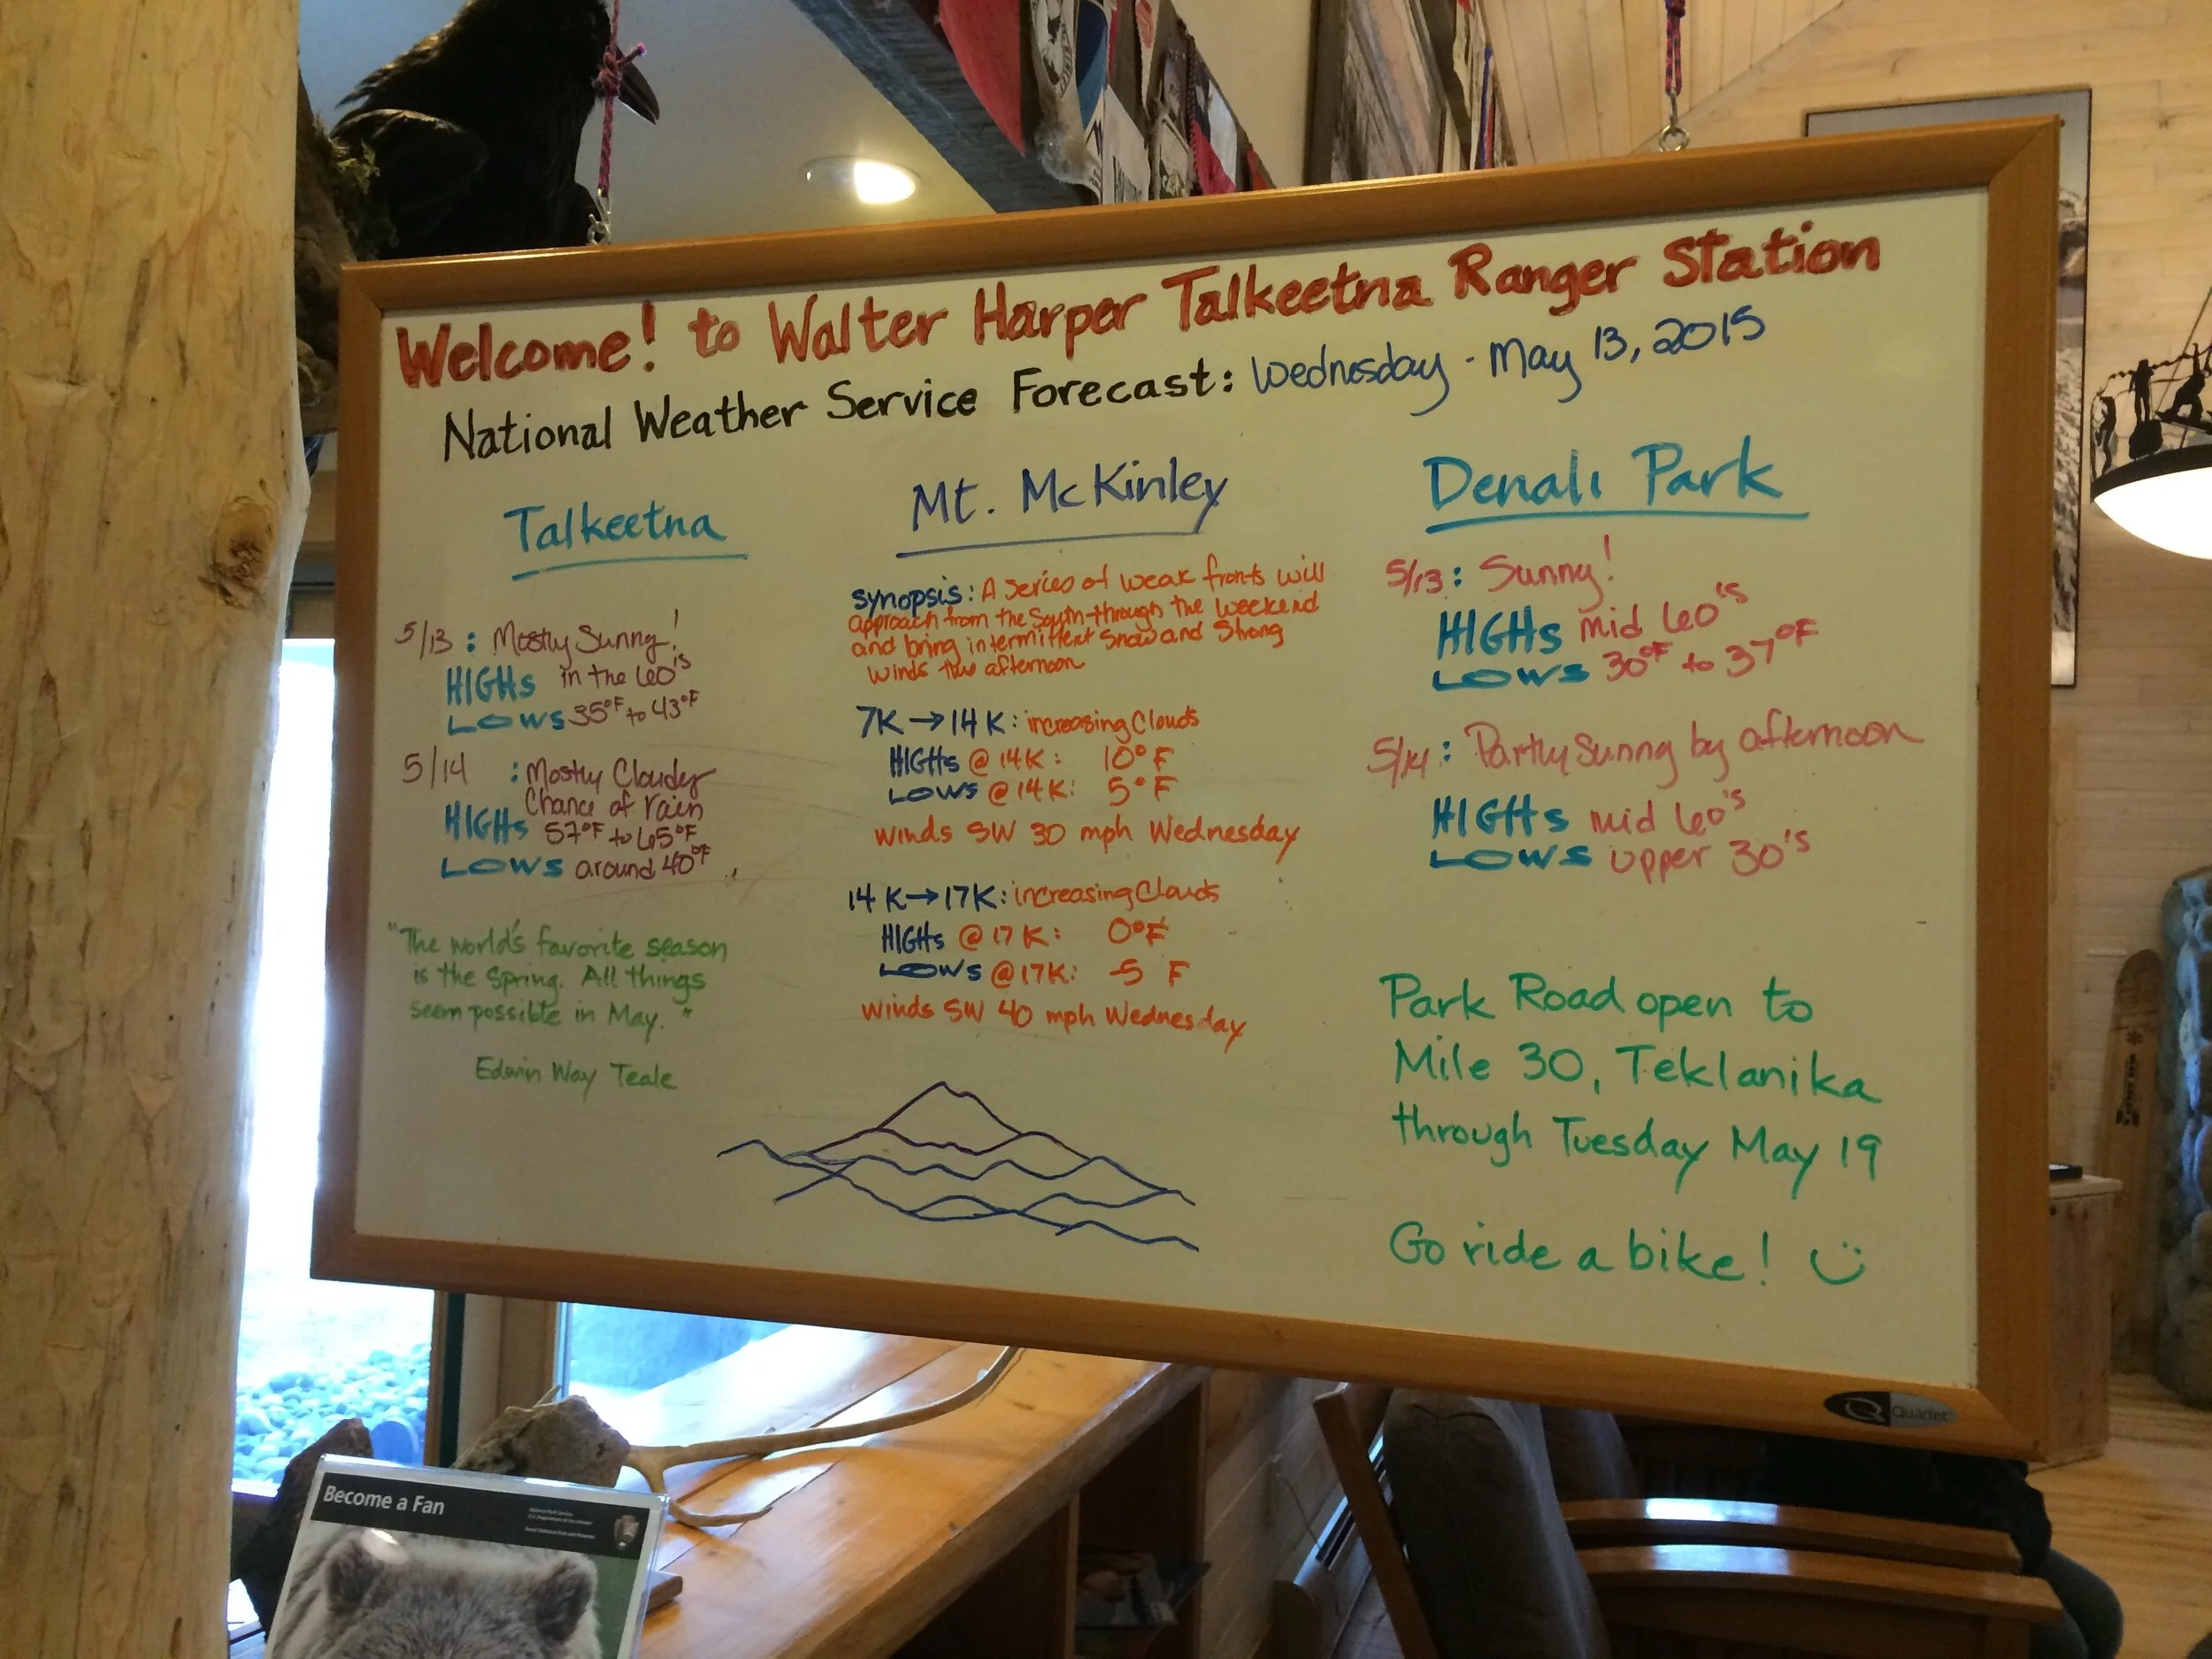 Welcome! to Walter Harper Talkeetna Ranger Station
National Weather Service Forecast: Wednesday - May 13, 2015
Talkeetna
5/13 : Mostly Sunny!
HIGHs in the 60's
LOWS 35°F to 43°F
5/14 : Mostly Cloudy
Chance of rain
HIGHs 57°F to 65°F
LOWS around 40°F
"The world's favorite season
is the Spring. All things
seem possible in May."
Edwin Way Teale
Mt. McKinley
Synopsis: A series of weak fronts will
approach from the South through the weekend
and bring intermittent snow and Strong
winds this afternoon
7K → 14K: increasing Clouds
HIGHs @ 14K: 10°F
LOWS @ 14K: 5°F
Winds SW 30 mph Wednesday
14K → 17K: increasing Clouds
HIGHs @ 17K: 0°F
LOWS @ 17K: -5 F
Winds SW 40 mph Wednesday
Denali Park
5/13: Sunny!
HIGHs mid 60's
LOWS 30°F to 37°F
5/14: Partly Sunny by afternoon
HIGHs mid 60's
LOWS upper 30's
Park Road open to
Mile 30, Teklanika
through Tuesday May 19
Go ride a bike!
Quartet
Become a Fan